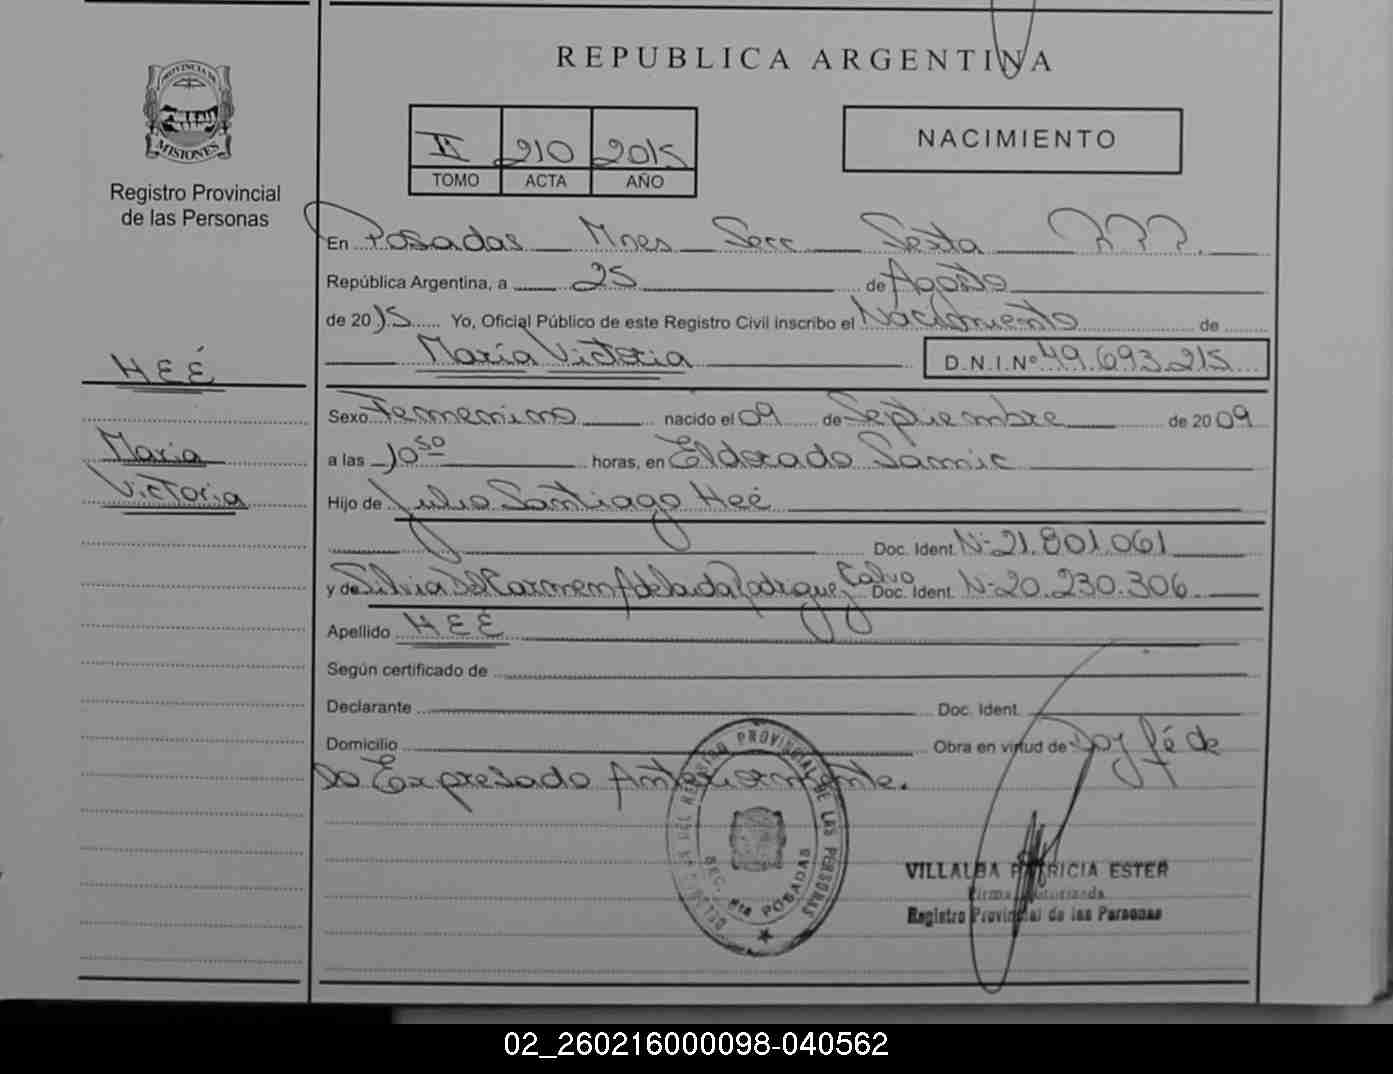 REPUBLICA ARGENTINA
PROVINCIA DE
MISIONES
Registro Provincial
de las Personas
II 210 2015
TOMO ACTA AÑO
NACIMIENTO
En Posadas Mnes Secc Sexta
República Argentina, a 25 de Agosto
de 2015 Yo, Oficial Público de este Registro Civil inscribo el Nacimiento de
María Victoria D.N.I.Nº 49.693.215
HEÉ
Maria
Victoria
Sexo Femenino nacido el 09 de Septiembre de 2009
a las 10 50 horas, en Eldorado Samic
Hijo de Julio Santiago Heé
Doc. Ident. Nº 21.801.061
y de Silvia Del Carmen Adelaida Rodriguez Calvo Doc. Ident. Nº 20.230.306
Apellido HEÉ
Según certificado de
Declarante Doc. Ident.
Domicilio Obra en virtud de Doy fé de
lo Expresado Anteriormente.
REGISTRO PROVINCIAL DE LAS PERSONAS
SEC. 6ta POSADAS
VILLALBA PATRICIA ESTER
Firma Autorizada
Registro Provincial de las Personas
02_260216000098-040562